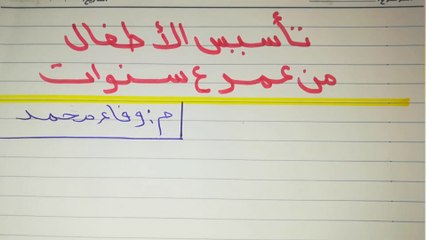 تأسيس الأطفال
من عمر ٤ سنوات
م : وفاء محمد